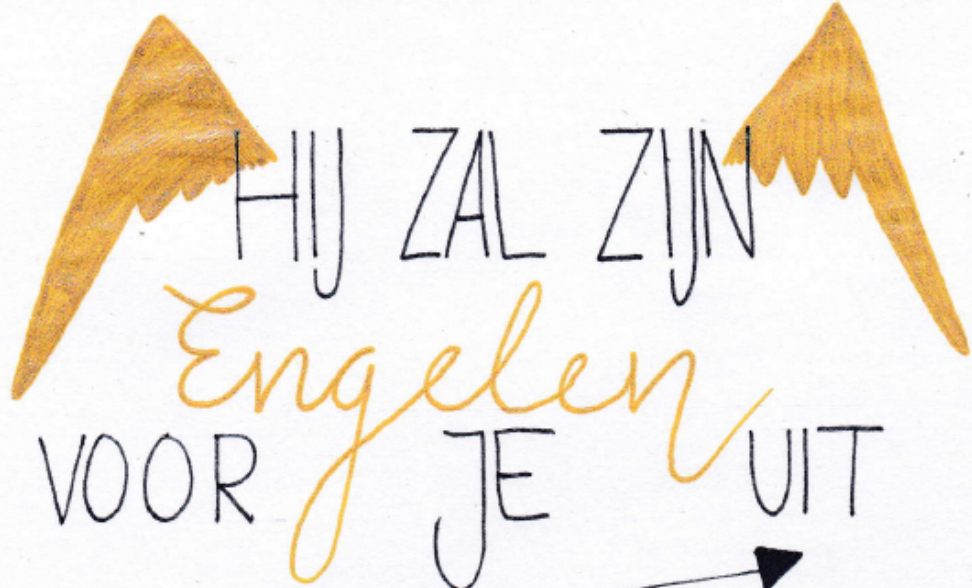 HIJ ZAL ZIJN
Engelen
VOOR JE UIT